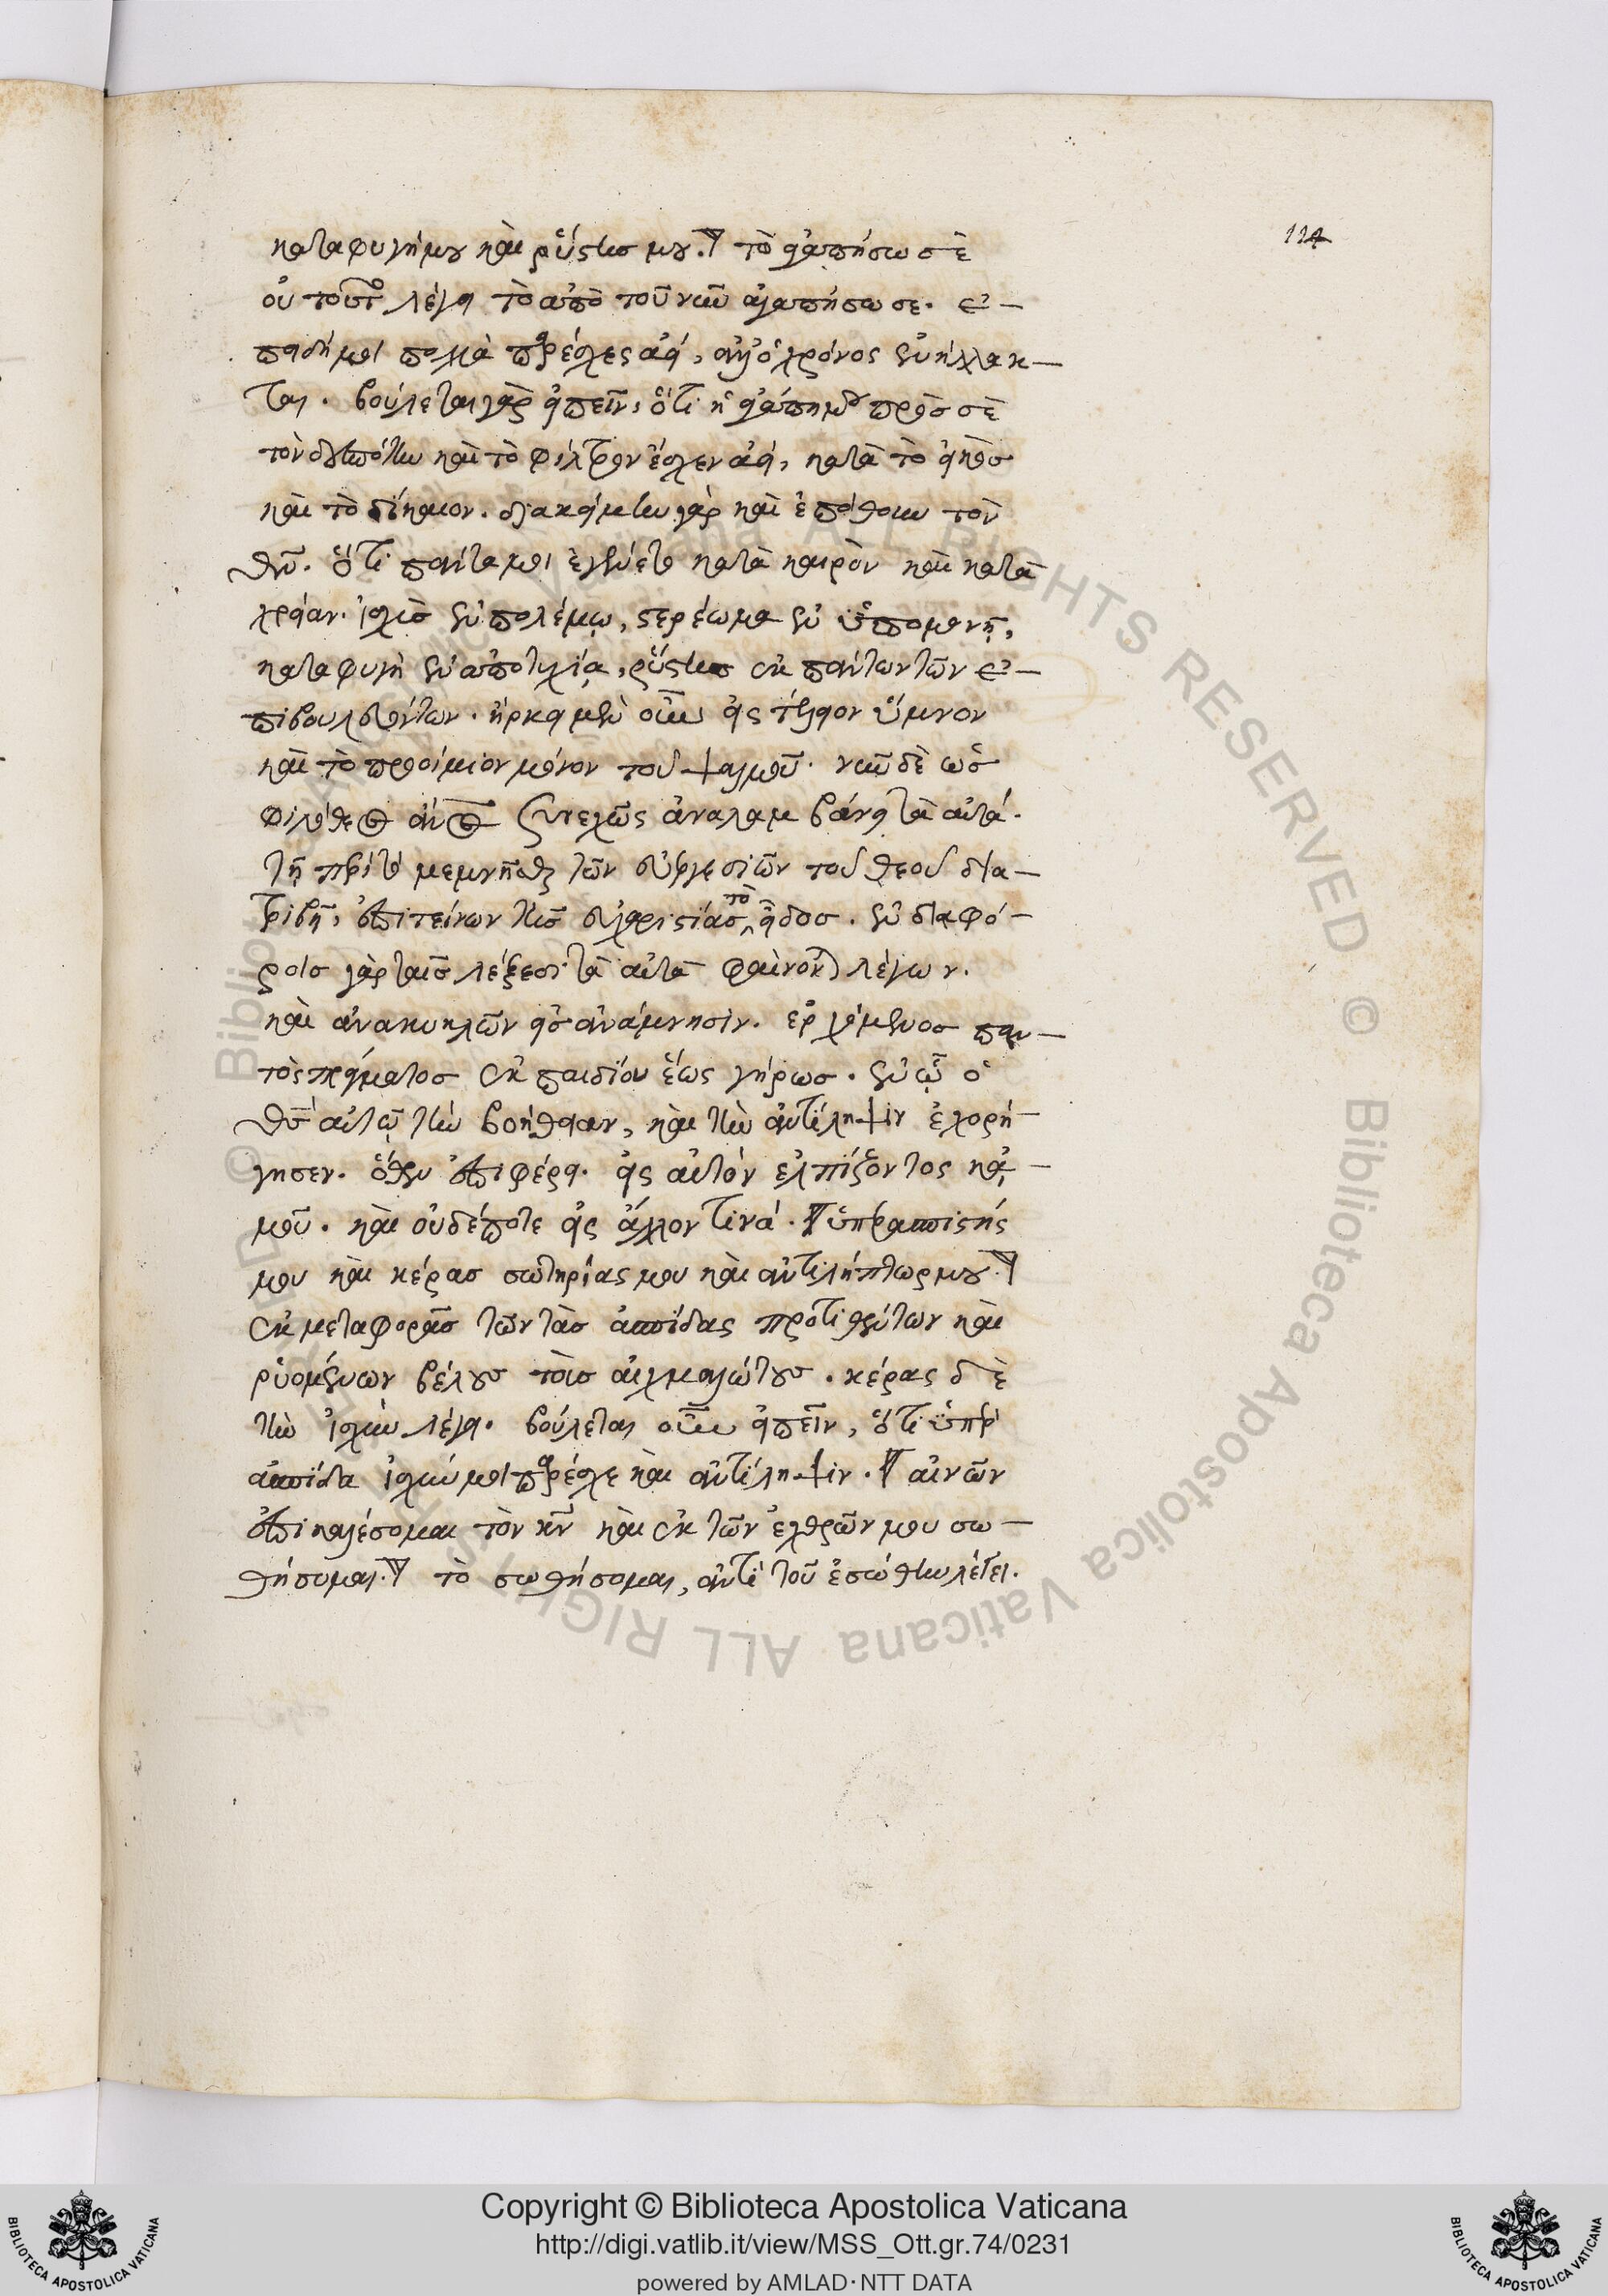 124
καταφυγή μου καὶ ῥύστης μου. τὸ ἀγαπήσω σὲ
οὐ τοῦτο λέγει τὸ ἀπὸ τοῦ νῦν ἀγαπήσω σε. ἐ-
πειδή μοι πολλὰ παρέσχες ἀεί, ὁ χρόνος ἐνήλλακ-
ται. βούλεται γὰρ εἰπεῖν, ὅτι ἡ ἀγάπη μου πρὸς σὲ
τὸν δεσπότην καὶ τὸ φίλτρον ἔσχεν ἀεί, κατὰ τὸ εἰκὸς
καὶ τὸ δίκαιον. διεκείμην γὰρ καὶ ἐπόθουν τὸν
θν. ὅτι πάντα μοι ἐγένετο κατὰ καιρὸν καὶ κατὰ
χρείαν. ἰσχὺς ἐν πολέμῳ, στερέωμα ἐν ὑπομονῇ,
καταφυγὴ ἐν ἀποτυχίᾳ, ῥύστης ἐκ πάντων τῶν ἐ-
πιβουλευόντων. ἤρκει μὲν οὖν εἰς τέλειον ὕμνον
καὶ τὸ προοίμιον μόνον τοῦ ψαλμοῦ. νῦν δὲ ὡς
φιλόθεος συνεχῶς ἀναλαμβάνει τὰ αὐτά.
μεμνῆσθαι τῶν εὐεργεσιῶν τοῦ θεοῦ δια-
τριβῇ, ἐπιτείνων τῆς εὐχαριστίας τὸ εἶδος. ἐν διαφό-
ροις γὰρ ταῖς λέξεσι τὰ αὐτὰ φαίνεται λέγων.
καὶ ἀνακυκλῶν εἰς ἀνάμνησιν. ἐρχόμενος παν-
τὸς πράγματος ἐκ παιδίου ἕως γήρως. ἐν ᾧ ὁ
θς αὐτῷ τὴν βοήθειαν, καὶ τὴν ἀντίληψιν ἐχορή-
γησεν. ὅθεν ἐπιφέρει. εἰς αὐτὸν ἐλπίζοντος κἀ-
μοῦ. καὶ οὐδέποτε εἰς ἄλλον τινά. ὑπερασπιστής
μου καὶ κέρας σωτηρίας μου καὶ ἀντιλήπτωρ μου.
ἐκ μεταφορᾶς τῶν τὰς ἀσπίδας προτιθέντων καὶ
ῥυομένων βέλους τοὺς αἰχμαλώτους. κέρας δὲ
τὴν ἰσχὺν λέγει. βούλεται οὖν εἰπεῖν, ὅτι ὑπὲρ
ἀσπίδα ἰσχύν μοι παρέσχε καὶ ἀντίληψιν. αἰνῶν
ἐπικαλέσομαι τὸν κν καὶ ἐκ τῶν ἐχθρῶν μου σω-
θήσομαι. τὸ σωθήσομαι, ἀντὶ τοῦ ἐσώθην λέγει.
Copyright © Biblioteca Apostolica Vaticana
http://digi.vatlib.it/view/MSS_Ott.gr.74/0231
powered by AMLAD·NTT DATA